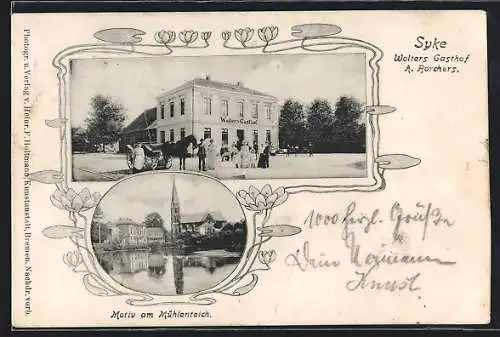 Photogr. u. Verlag v. Heinr. F. Boltmann, Kunstanstalt, Bremen. Nachdr. verb.
Syke
Wolters Gasthof
A. Borchers.
Wolters Gasthof
1000 herzl. Grüße
Dein
Motiv am Mühlenteich.